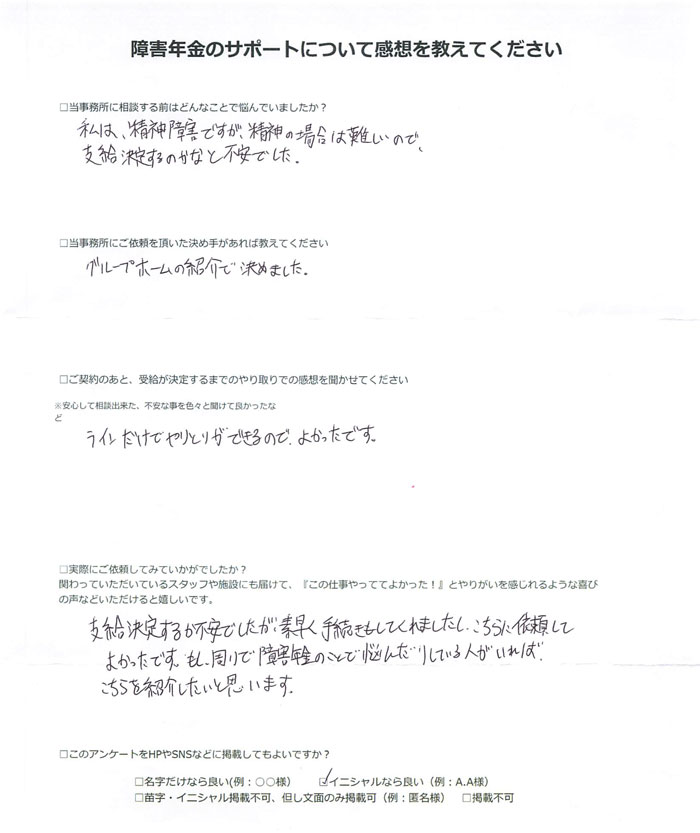 障害年金のサポートについて感想を教えてください
□当事務所に相談する前はどんなことで悩んでいましたか？
私は、精神障害ですが、精神の場合は難しいので、
支給決定するのかなと不安でした。
□当事務所にご依頼を頂いた決め手があれば教えてください
グループホームの紹介で決めました。
□ご契約のあと、受給が決定するまでのやり取りでの感想を聞かせてください
※安心して相談出来た、不安な事を色々と聞けて良かったな
ど
ラインだけでやりとりができるので、よかったです。
□実際にご依頼してみていかがでしたか？
関わっていただいているスタッフや施設にも届けて、『この仕事やっててよかった！』とやりがいを感じれるような喜び
の声などいただけると嬉しいです。
支給決定するか不安でしたが、素早く手続きもしてくれましたし、こちらに依頼して
よかったです。もし、周りで障害年金のことで悩んだりしている人がいれば、
こちらを紹介したいと思います。
□このアンケートをHPやSNSなどに掲載してもよいですか？
□名字だけなら良い(例：○○様）　☑イニシャルなら良い（例：A.A様）
□苗字・イニシャル掲載不可、但し文面のみ掲載可（例：匿名様）　□掲載不可